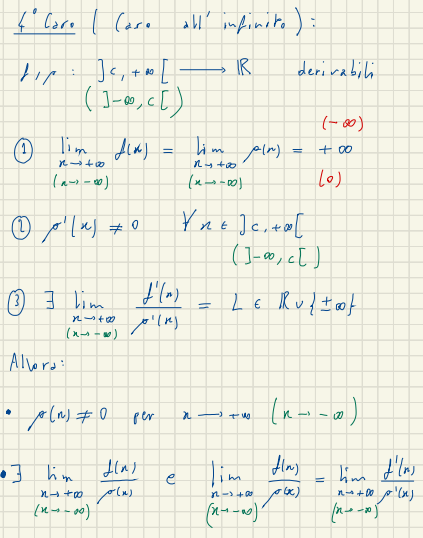 4° Caso (Caso all'infinito):
f, g : ]c, +∞[ → ℝ derivabili
(]-∞, c[)
(-∞)
① lim f(x) = lim g(x) = +∞
x→+∞ x→+∞
(x→-∞) (x→-∞) (0)
② g'(x) ≠ 0 ∀ x ∈ ]c, +∞[
(]-∞, c[)
③ ∃ lim f'(x)/g'(x) = L ∈ ℝ ∪ {±∞}
x→+∞
(x→-∞)
Allora:
• g(x) ≠ 0 per x → +∞ (x → -∞)
• ∃ lim f(x)/g(x) e lim f(x)/g(x) = lim f'(x)/g'(x)
x→+∞ x→+∞ x→+∞
(x→-∞) (x→-∞) (x→-∞)